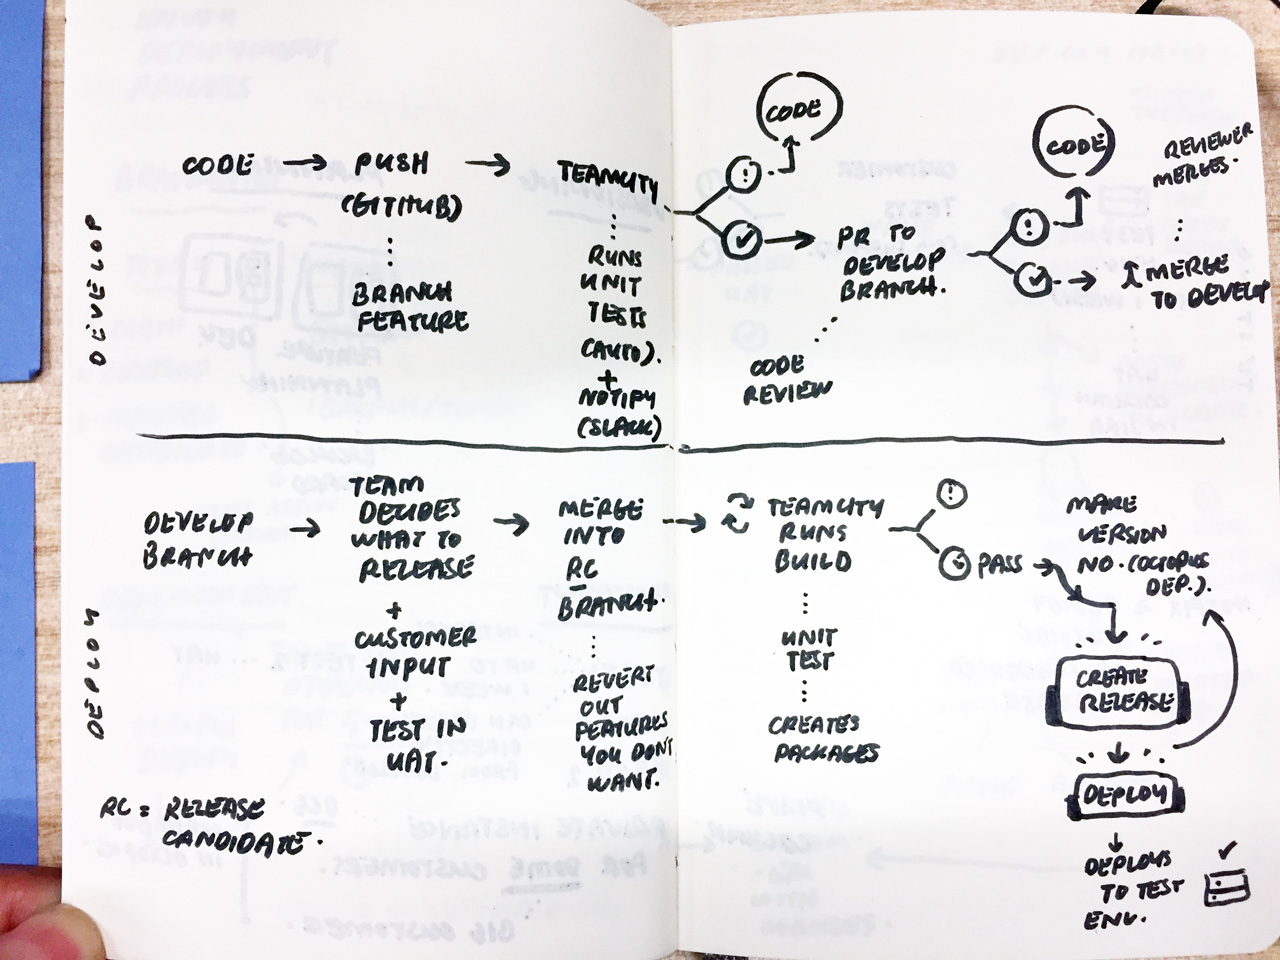 DEVELOP
CODE → PUSH → TEAMCITY
(GITHUB)
BRANCH
FEATURE
RUNS
UNIT
TESTS
(AUTO).
+
NOTIFY
(SLACK)
!
CODE
PR TO
DEVELOP
BRANCH.
CODE
REVIEW
!
CODE
REVIEWER
MERGES.
MERGE
TO DEVELOP
DEPLOY
DEVELOP
BRANCH
TEAM
DECIDES
WHAT TO
RELEASE
+
CUSTOMER
INPUT
+
TEST IN
UAT.
MERGE
INTO
RC
BRANCH.
REVERT
OUT
FEATURES
YOU DON'T
WANT.
TEAMCITY
RUNS
BUILD
UNIT
TEST
CREATES
PACKAGES
!
PASS
MAKE
VERSION
NO. (OCTOPUS
DEP.).
CREATE
RELEASE
DEPLOY
DEPLOYS
TO TEST
ENV.
RC = RELEASE
CANDIDATE.